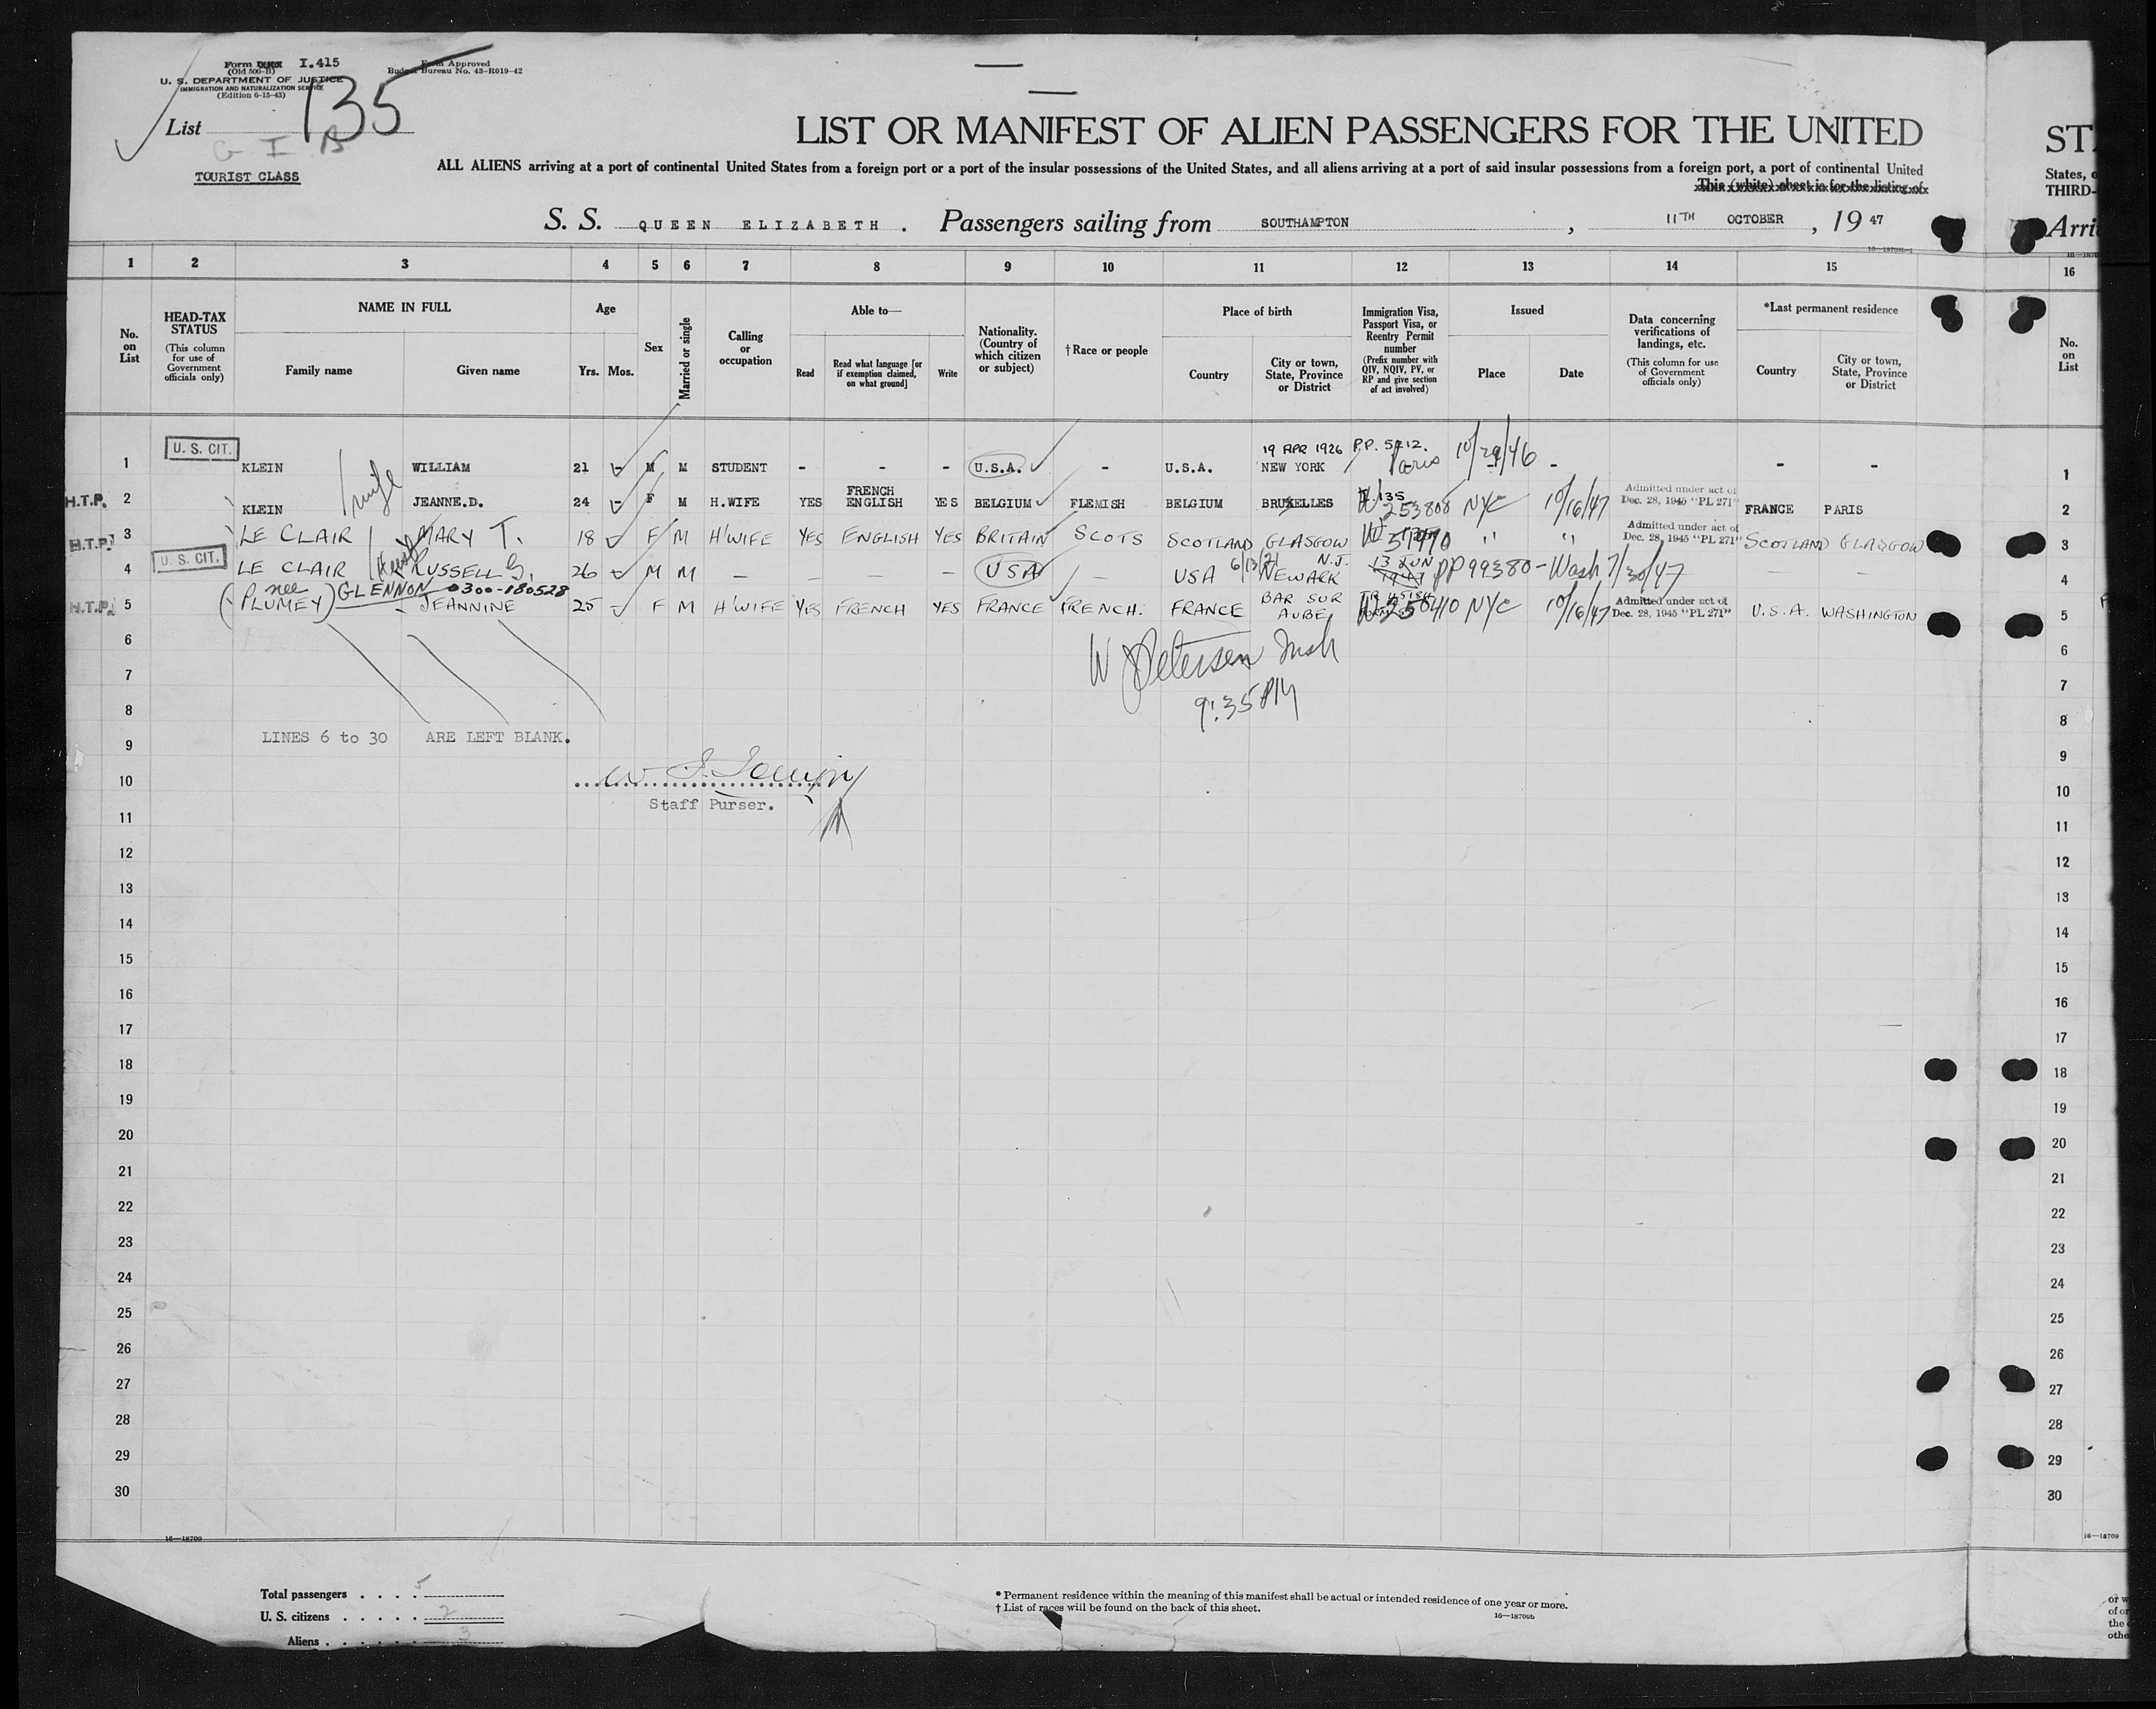 Form I.415
(Old 500-B)
U. S. DEPARTMENT OF JUSTICE
IMMIGRATION AND NATURALIZATION SERVICE
(Edition 6-15-43)
Form Approved
Budget Bureau No. 43-R019-42
List 135
G I B
TOURIST CLASS
LIST OR MANIFEST OF ALIEN PASSENGERS FOR THE UNITED
ST
ALL ALIENS arriving at a port of continental United States from a foreign port or a port of the insular possessions of the United States, and all aliens arriving at a port of said insular possessions from a foreign port, a port of continental United
States, o
This (white) sheet is for the listing of
THIRD-
S. S. QUEEN ELIZABETH . Passengers sailing from SOUTHAMPTON , 11TH OCTOBER , 19 47
Arri
16—18709b-1
1 2 3 4 5 6 7 8 9 10 11 12 13 14 15 16
No. on List
HEAD-TAX STATUS (This column for use of Government officials only)
NAME IN FULL
Family name Given name
Age
Yrs. Mos.
Sex
Married or single
Calling or occupation
Able to—
Read Read what language [or if exemption claimed, on what ground] Write
Nationality. (Country of which citizen or subject)
†Race or people
Place of birth
Country City or town, State, Province or District
Immigration Visa, Passport Visa, or Reentry Permit number (Prefix number with QIV, NQIV, PV, or RP and give section of act involved)
Issued
Place Date
Data concerning verifications of landings, etc. (This column for use of Government officials only)
*Last permanent residence
Country City or town, State, Province or District
No. on List
1 U. S. CIT. KLEIN WILLIAM 21 M M STUDENT - - - U.S.A. - U.S.A. 19 APR 1926 NEW YORK P.P. 5212. Paris 10/29/46 - - - 1
wife
H.T.P. 2 KLEIN JEANNE.D. 24 F M H.WIFE YES FRENCH ENGLISH YES BELGIUM FLEMISH BELGIUM BRUXELLES 135 253808 NYC 10/16/47 Admitted under act of Dec. 28, 1945 "PL 271" FRANCE PARIS 2
H.T.P. 3 LE CLAIR MARY T. 18 F M H'WIFE YES ENGLISH YES BRITAIN SCOTS SCOTLAND GLASGOW " " Admitted under act of Dec. 28, 1945 "PL 271" SCOTLAND GLASGOW 3
4 U. S. CIT. LE CLAIR RUSSELL G. 26 M M — — — — USA — USA 6/13/21 NEWARK N.J. 13 JUN PP 99380 - Wash 7/30/47 — — 4
H.T.P. 5 (nee PLUMEY) GLENNON 0300-180528 JEANNINE 25 F M H'WIFE YES FRENCH YES FRANCE FRENCH. FRANCE BAR SUR AUBE NYC 10/16/47 Admitted under act of Dec. 28, 1945 "PL 271" U.S.A. WASHINGTON 5
6 6
W Petersen Insp
7 7
9:35 PM
8 8
LINES 6 to 30 ARE LEFT BLANK.
9 9
10 10
Staff Purser.
11 11
12 12
13 13
14 14
15 15
16 16
17 17
18 18
19 19
20 20
21 21
22 22
23 23
24 24
25 25
26 26
27 27
28 28
29 29
30 30
16—18709
16—18709
Total passengers . . . . 5
U. S. citizens . . . . . 2
Aliens . . . . . . 3
* Permanent residence within the meaning of this manifest shall be actual or intended residence of one year or more.
† List of races will be found on the back of this sheet.
16—18709b
or w
of or
the
othe